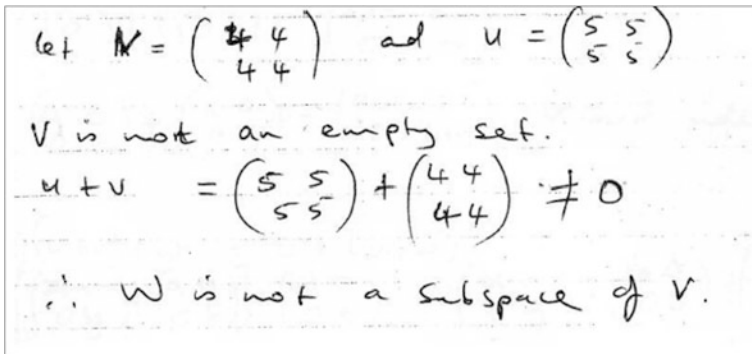 let V = ( 4 4 ) and u = ( 5 5 )
( 4 4 ) ( 5 5 )
V is not an empty set.
u + v = ( 5 5 ) + ( 4 4 ) ≠ 0
( 5 5 ) ( 4 4 )
∴ W is not a subspace of V.